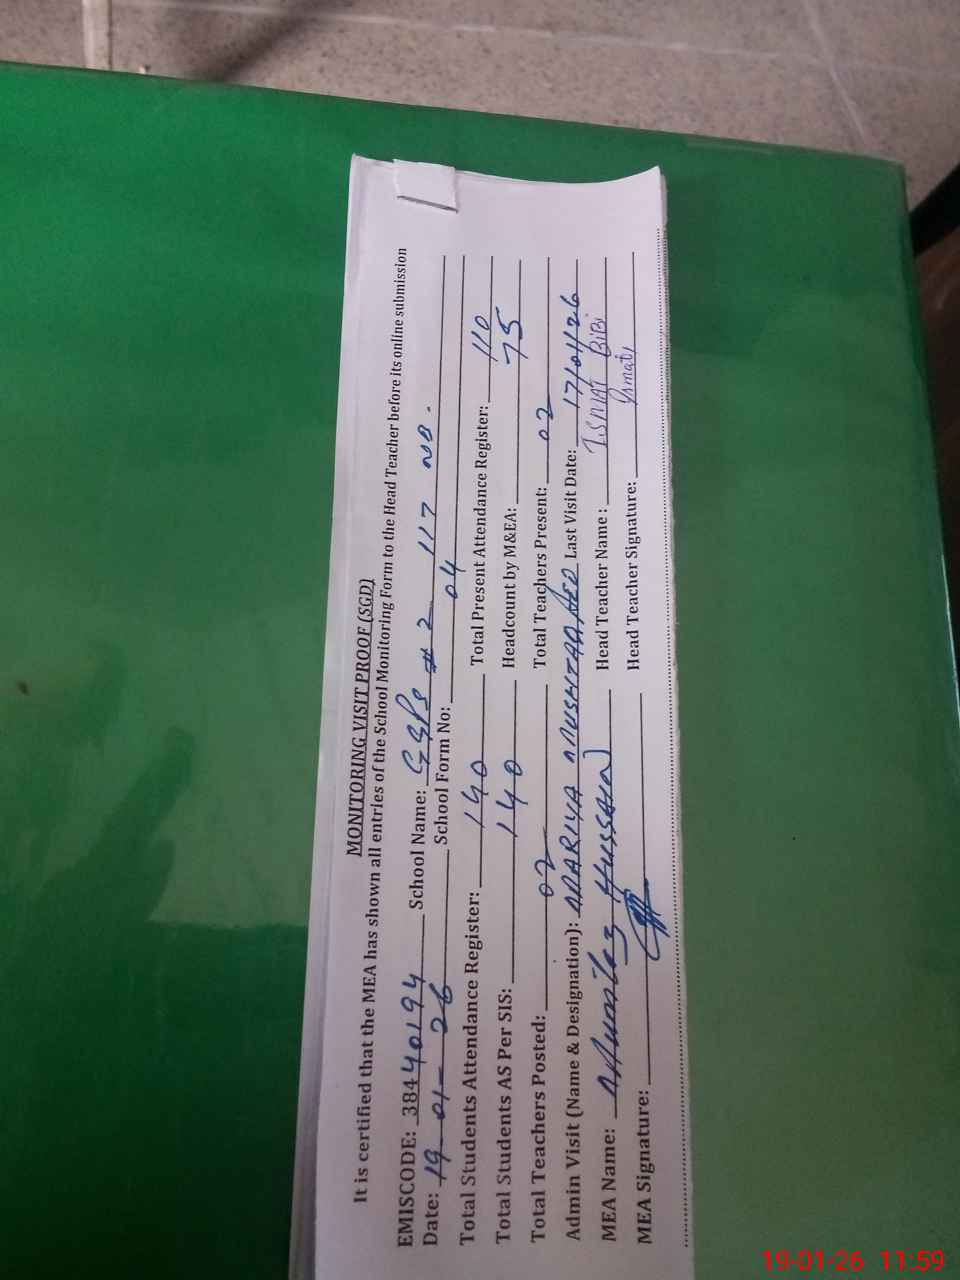 MONITORING VISIT PROOF (SGD)
It is certified that the MEA has shown all entries of the School Monitoring Form to the Head Teacher before its online submission
EMISCODE: 38440194 School Name: GGPS # 2 117 NB.
Date: 19-01-26 School Form No: 04
Total Students Attendance Register: 140 Total Present Attendance Register: 110
Total Students AS Per SIS: 140 Headcount by M&EA: 75
Total Teachers Posted: 02 Total Teachers Present: 02
Admin Visit (Name & Designation): MARIYA MUSHTAQ AEO Last Visit Date: 17/01/26
MEA Name: Mumtaz Hussain Head Teacher Name: ISMAT BiBi
MEA Signature: Head Teacher Signature: Ismat
19-01-26 11:59